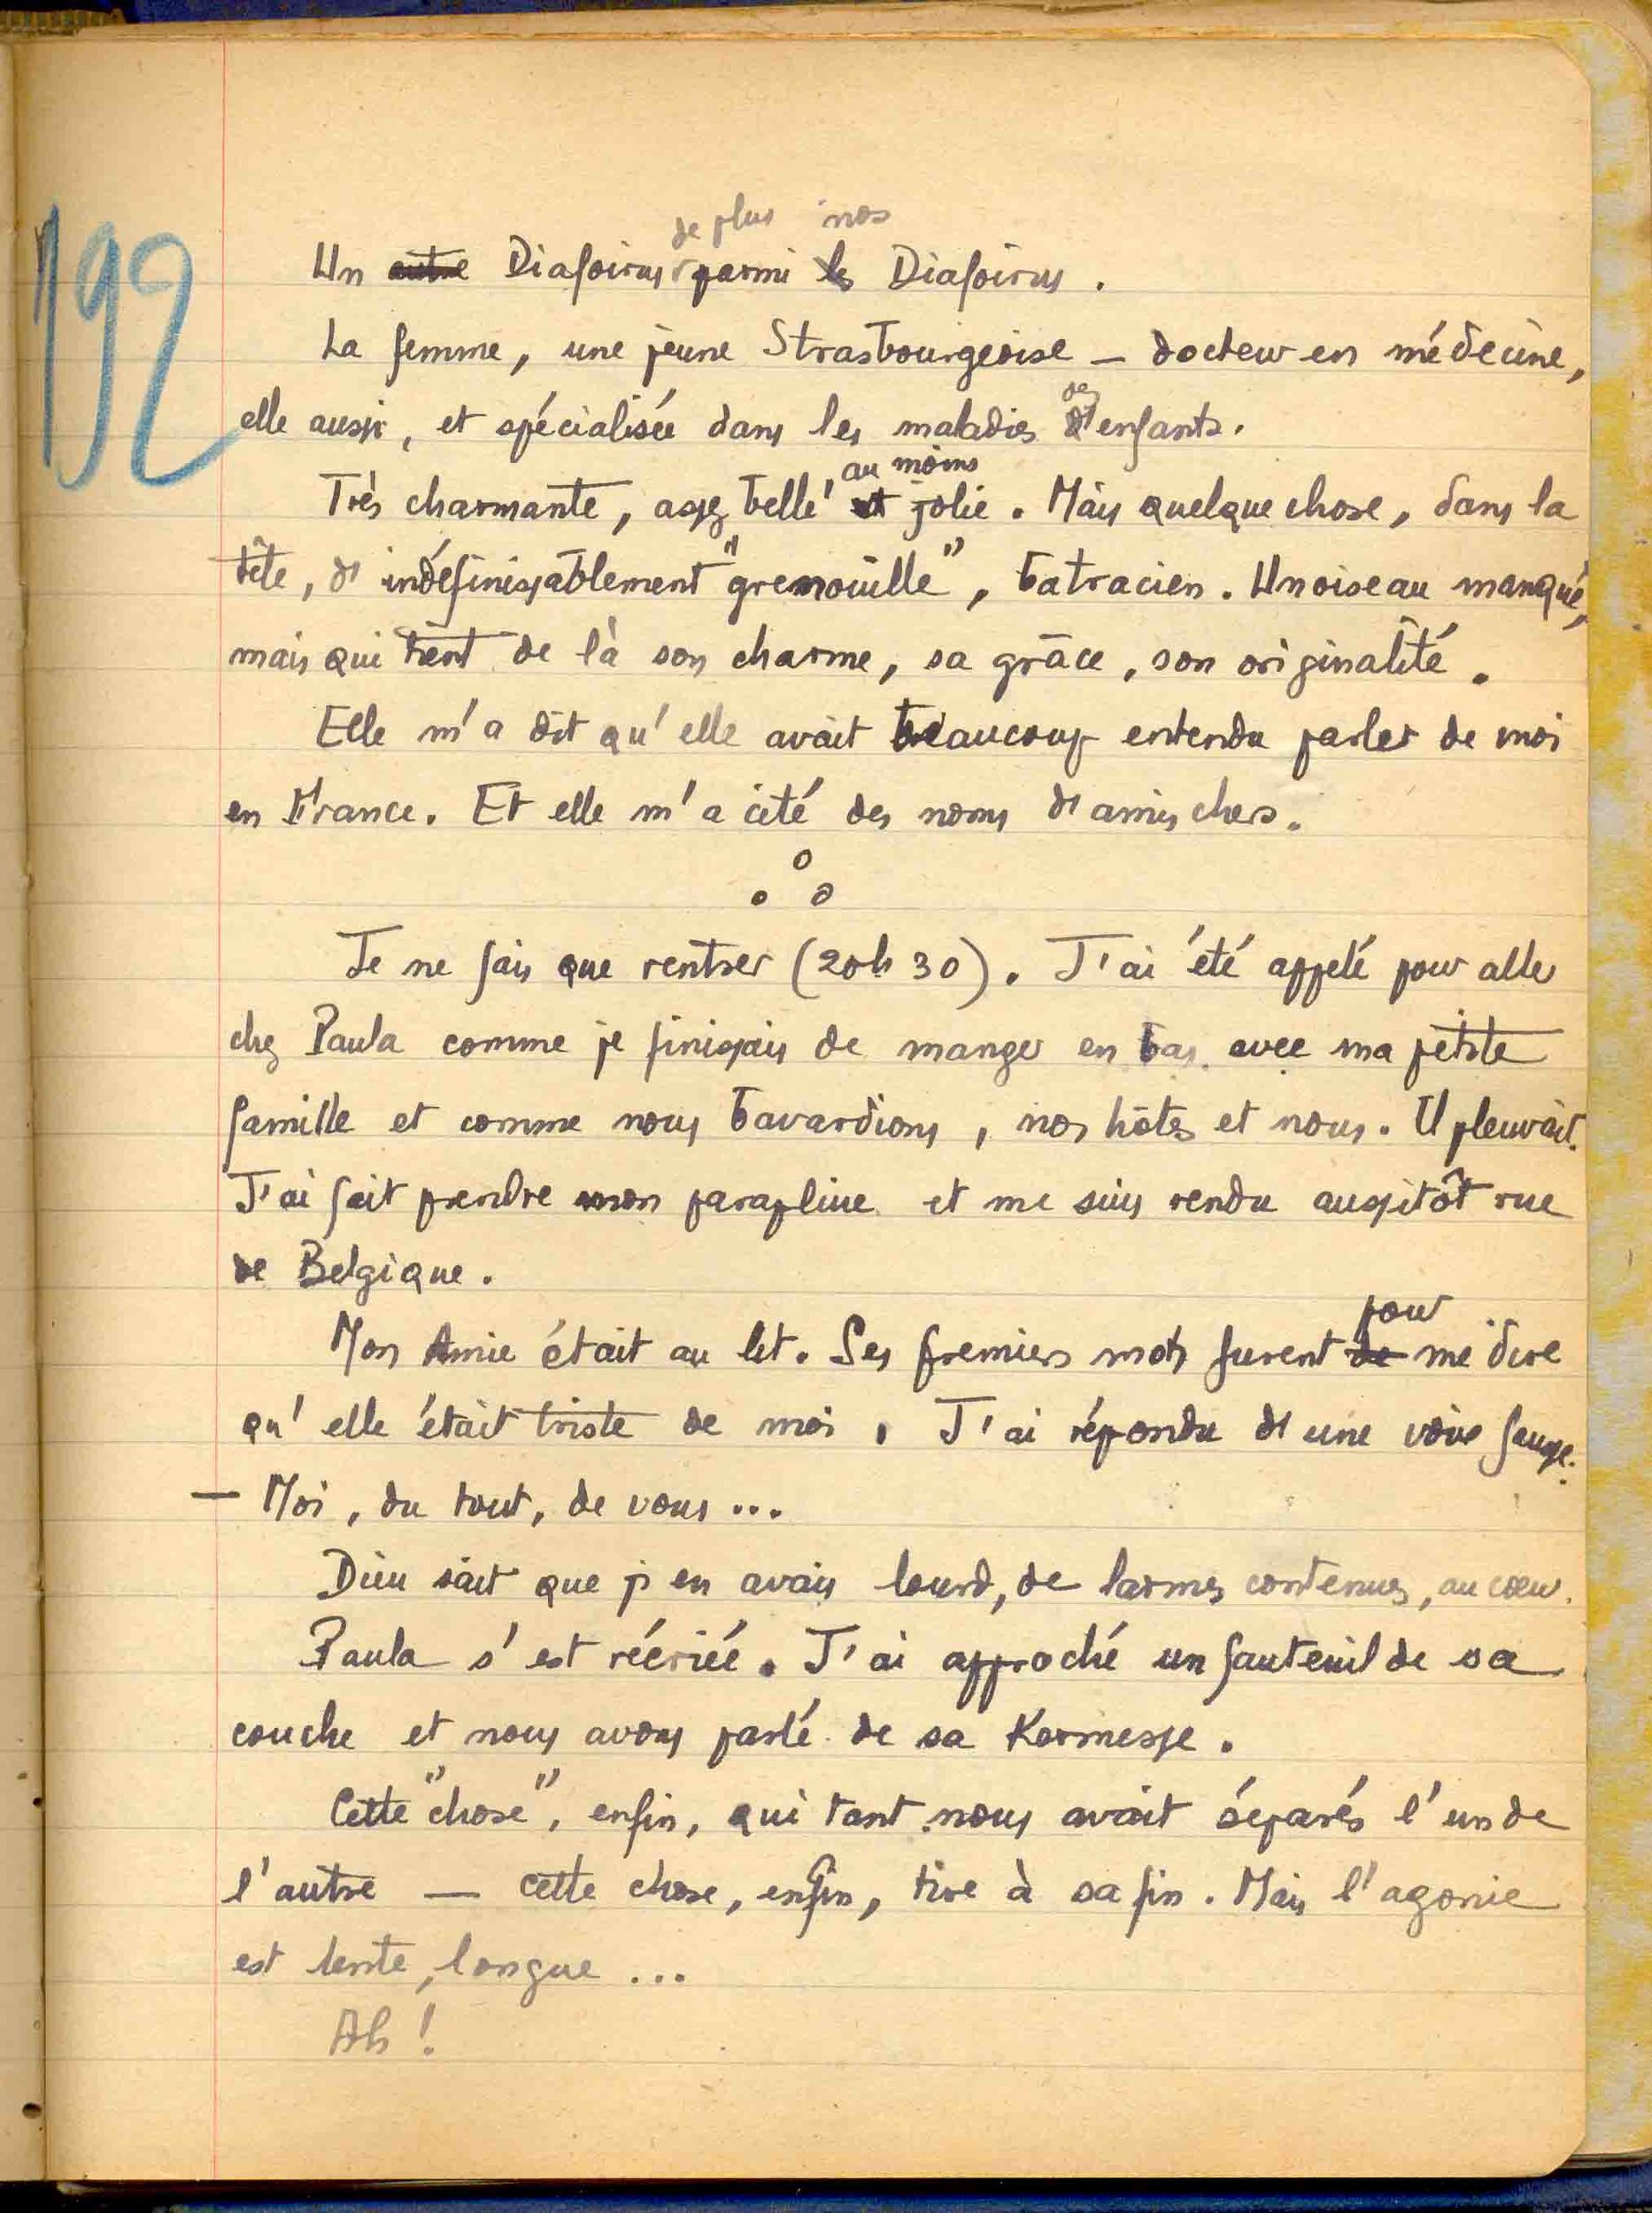 192
de plus nos
Un autre Diafoirus parmi les Diafoirus.
La femme, une jeune Strasbourgeoise — docteur en médecine,
elle aussi, et spécialisée dans les maladies d'enfants.
de
au moins
Très charmante, assez belle, et jolie. Mais quelque chose, dans la
tête, d'indéfinissablement "grenouille", batracien. Un oiseau manqué,
mais qui tient de là son charme, sa grâce, son originalité.
Elle m'a dit qu'elle avait beaucoup entendu parler de moi
en France. Et elle m'a cité des noms d'amis chers.
Je ne fais que rentrer (20h 30). J'ai été appelé pour aller
chez Paula comme je finissais de manger en bas avec ma petite
famille et comme nous bavardions, nos hôtes et nous. Il pleuvait.
J'ai fait prendre mon parapluie et me suis rendu aussitôt rue
de Belgique.
pour
Mon Amie était au lit. Ses premiers mots furent de me dire
qu'elle était triste de moi. J'ai répondu d'une voix fausse:
— Moi, du tout, de vous...
Dieu sait que j'en avais lourd, de larmes contenues, au cœur.
Paula s'est récriée. J'ai approché un fauteuil de sa
couche et nous avons parlé de sa Kermesse.
Cette "chose", enfin, qui tant nous avait séparés l'un de
l'autre — cette chose, enfin, tire à sa fin. Mais l'agonie
est lente, longue...
Ah!